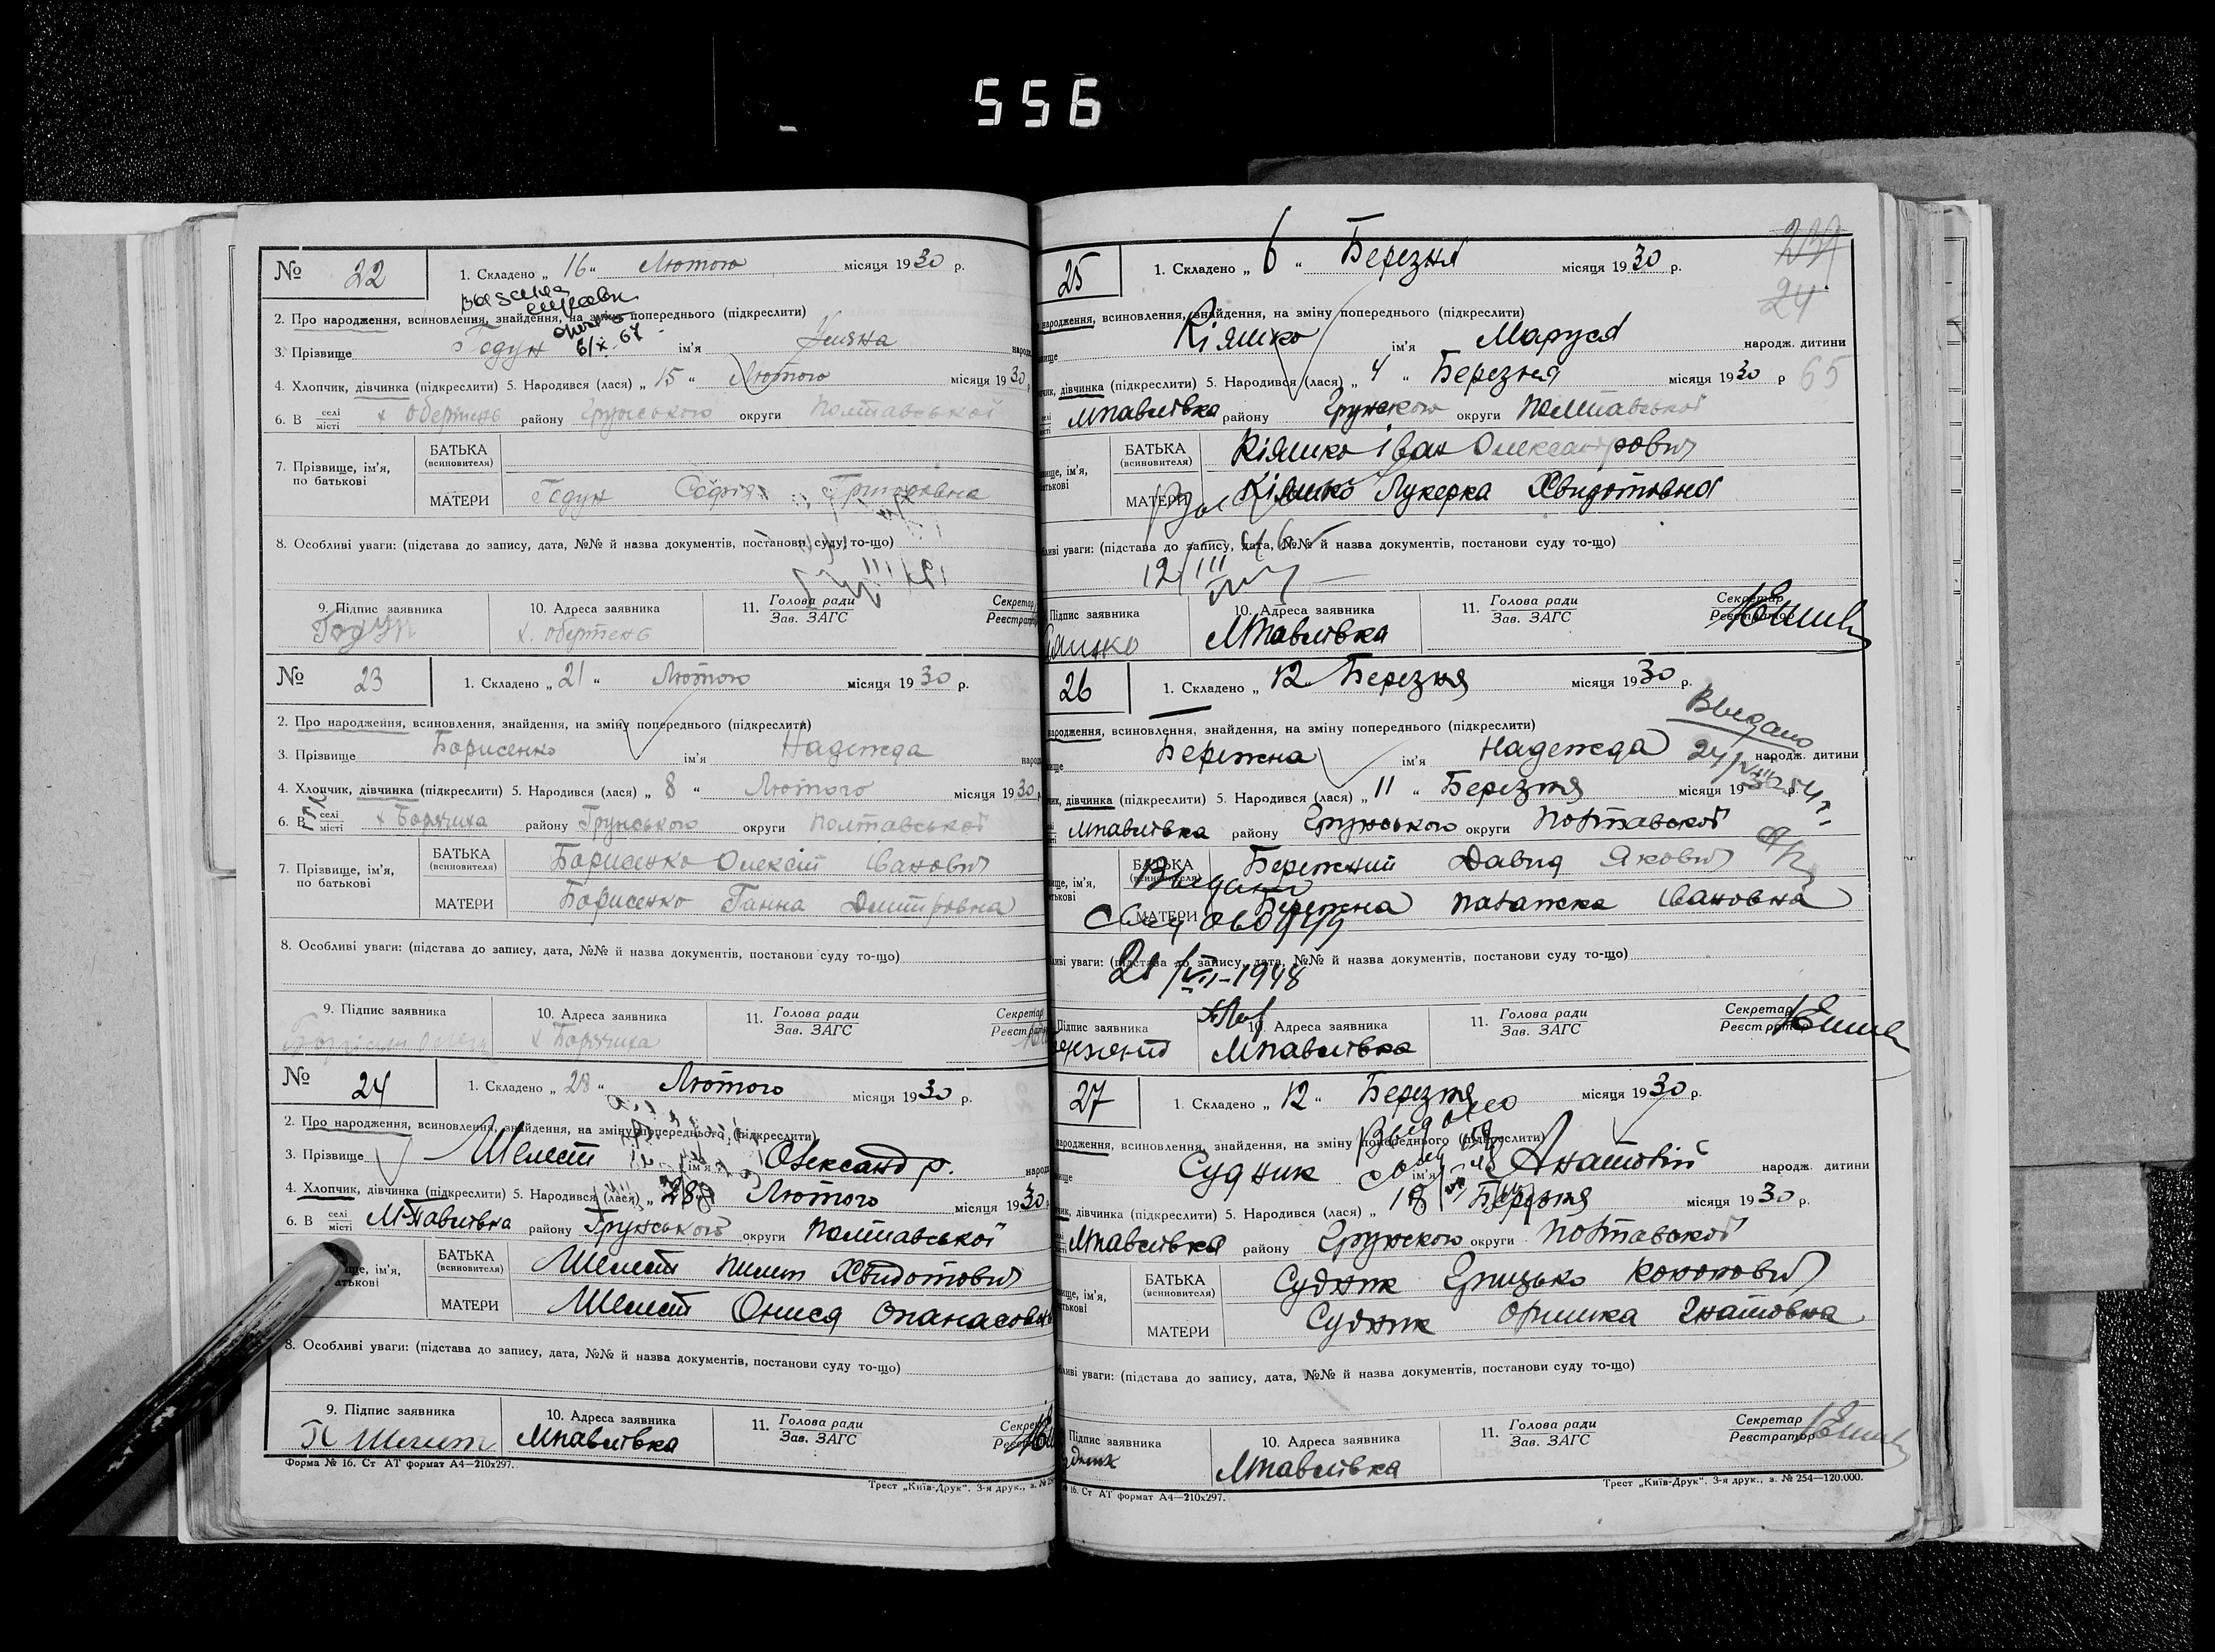 556
№ 22
1. Складено „ 16 “ Лютого місяця 1930 р.
2. Про народження, всиновлення, знайдення, на зміну попереднього (підкреслити)
6/X 67
3. Прізвище Годун ім'я Уляна
4. Хлопчик, дівчинка (підкреслити) 5. Народився (лася) „ 15 “ Лютого місяця 1930
6. В селі місті х Обертень району Грунського округи Полтавської
7. Прізвище, ім'я, по батькові
БАТЬКА (всиновителя)
МАТЕРИ Годун Софія Григоровна
8. Особливі уваги: (підстава до запису, дата, №№ й назва документів, постанови суду то-що)
9. Підпис заявника 10. Адреса заявника 11. Голова ради Зав. ЗАГС Секретар Реєстратор
Годун х. Обертень
№ 23
1. Складено „ 21 “ Лютого місяця 1930 р.
2. Про народження, всиновлення, знайдення, на зміну попереднього (підкреслити)
3. Прізвище Борисенко ім'я Надежда
4. Хлопчик, дівчинка (підкреслити) 5. Народився (лася) „ 8 “ Лютого місяця 1930
6. В селі місті х Борячиха району Грунського округи Полтавської
7. Прізвище, ім'я, по батькові
БАТЬКА (всиновителя) Борисенко Олексій Іванович
МАТЕРИ Борисенко Ганна Дмитровна
8. Особливі уваги: (підстава до запису, дата, №№ й назва документів, постанови суду то-що)
9. Підпис заявника 10. Адреса заявника 11. Голова ради Зав. ЗАГС Секретар Реєстратор
х Борячиха
№ 24
1. Складено „ 28 “ Лютого місяця 1930 р.
2. Про народження, всиновлення, знайдення, на зміну попереднього (підкреслити)
3. Прізвище Шелест ім'я Олександр.
4. Хлопчик, дівчинка (підкреслити) 5. Народився (лася) „ 28 “ Лютого місяця 1930
6. В селі місті М-Павлівка району Грунського округи Полтавської
БАТЬКА (всиновителя) Шелест Пилип Хвидотович
МАТЕРИ Шелест Онися Опанасовна
8. Особливі уваги: (підстава до запису, дата, №№ й назва документів, постанови суду то-що)
9. Підпис заявника 10. Адреса заявника 11. Голова ради Зав. ЗАГС
П Шелест МПавлівка
Форма № 16. Ст АТ формат А4—210х297.
Трест „Київ-Друк“. 3-я друк., з. №
24
65
25
1. Складено „ 6 “ Березня місяця 1930 р.
народження, всиновлення, знайдення, на зміну попереднього (підкреслити)
Кіяшко ім'я Маруся народж. дитини
дівчинка (підкреслити) 5. Народився (лася) „ 4 “ Березня місяця 1930 р
МПавлівка району Грунского округи Полтавської
БАТЬКА (всиновителя) Кіяшко Іван Олександрович
МАТЕРИ Кіяшко Лукерка Хвидотовна
уваги: (підстава до запису, дата, №№ й назва документів, постанови суду то-що)
12/III
Підпис заявника 10. Адреса заявника 11. Голова ради Зав. ЗАГС Секретар Реєстратор
МПавлівка
26
1. Складено „ 12 Березня місяця 1930 р.
Выдано
народження, всиновлення, знайдення, на зміну попереднього (підкреслити)
Бережна ім'я Надежда народж. дитини
дівчинка (підкреслити) 5. Народився (лася) „ 11 “ Березня місяця 1930
МПавлівка району Грунського округи Полтавской
БАТЬКА (всиновителя) Бережний Давид Якович
Выдано
МАТЕРИ Бережна Палажка Івановна
уваги: (підстава до запису, дата, №№ й назва документів, постанови суду то-що)
21/VII-1948
Підпис заявника 10. Адреса заявника 11. Голова ради Зав. ЗАГС Секретар Реєстратор
МПавлівка
27
1. Складено „ 12 “ Березня місяця 1930 р.
народження, всиновлення, знайдення, на зміну попереднього (підкреслити)
Судник ім'я Анатолій народж. дитини
дівчинка (підкреслити) 5. Народився (лася) „ Березня місяця 1930 р.
МПавлівка району Грунского округи Полтавской
БАТЬКА (всиновителя) Судник Грицько Кононович
МАТЕРИ Судник Оришка Гнатовна
уваги: (підстава до запису, дата, №№ й назва документів, постанови суду то-що)
Підпис заявника 10. Адреса заявника 11. Голова ради Зав. ЗАГС Секретар Реєстратор
МПавлівка
16. Ст АТ формат А4—210х297.
Трест „Київ-Друк“. 3-я друк., з. № 254—120.000.